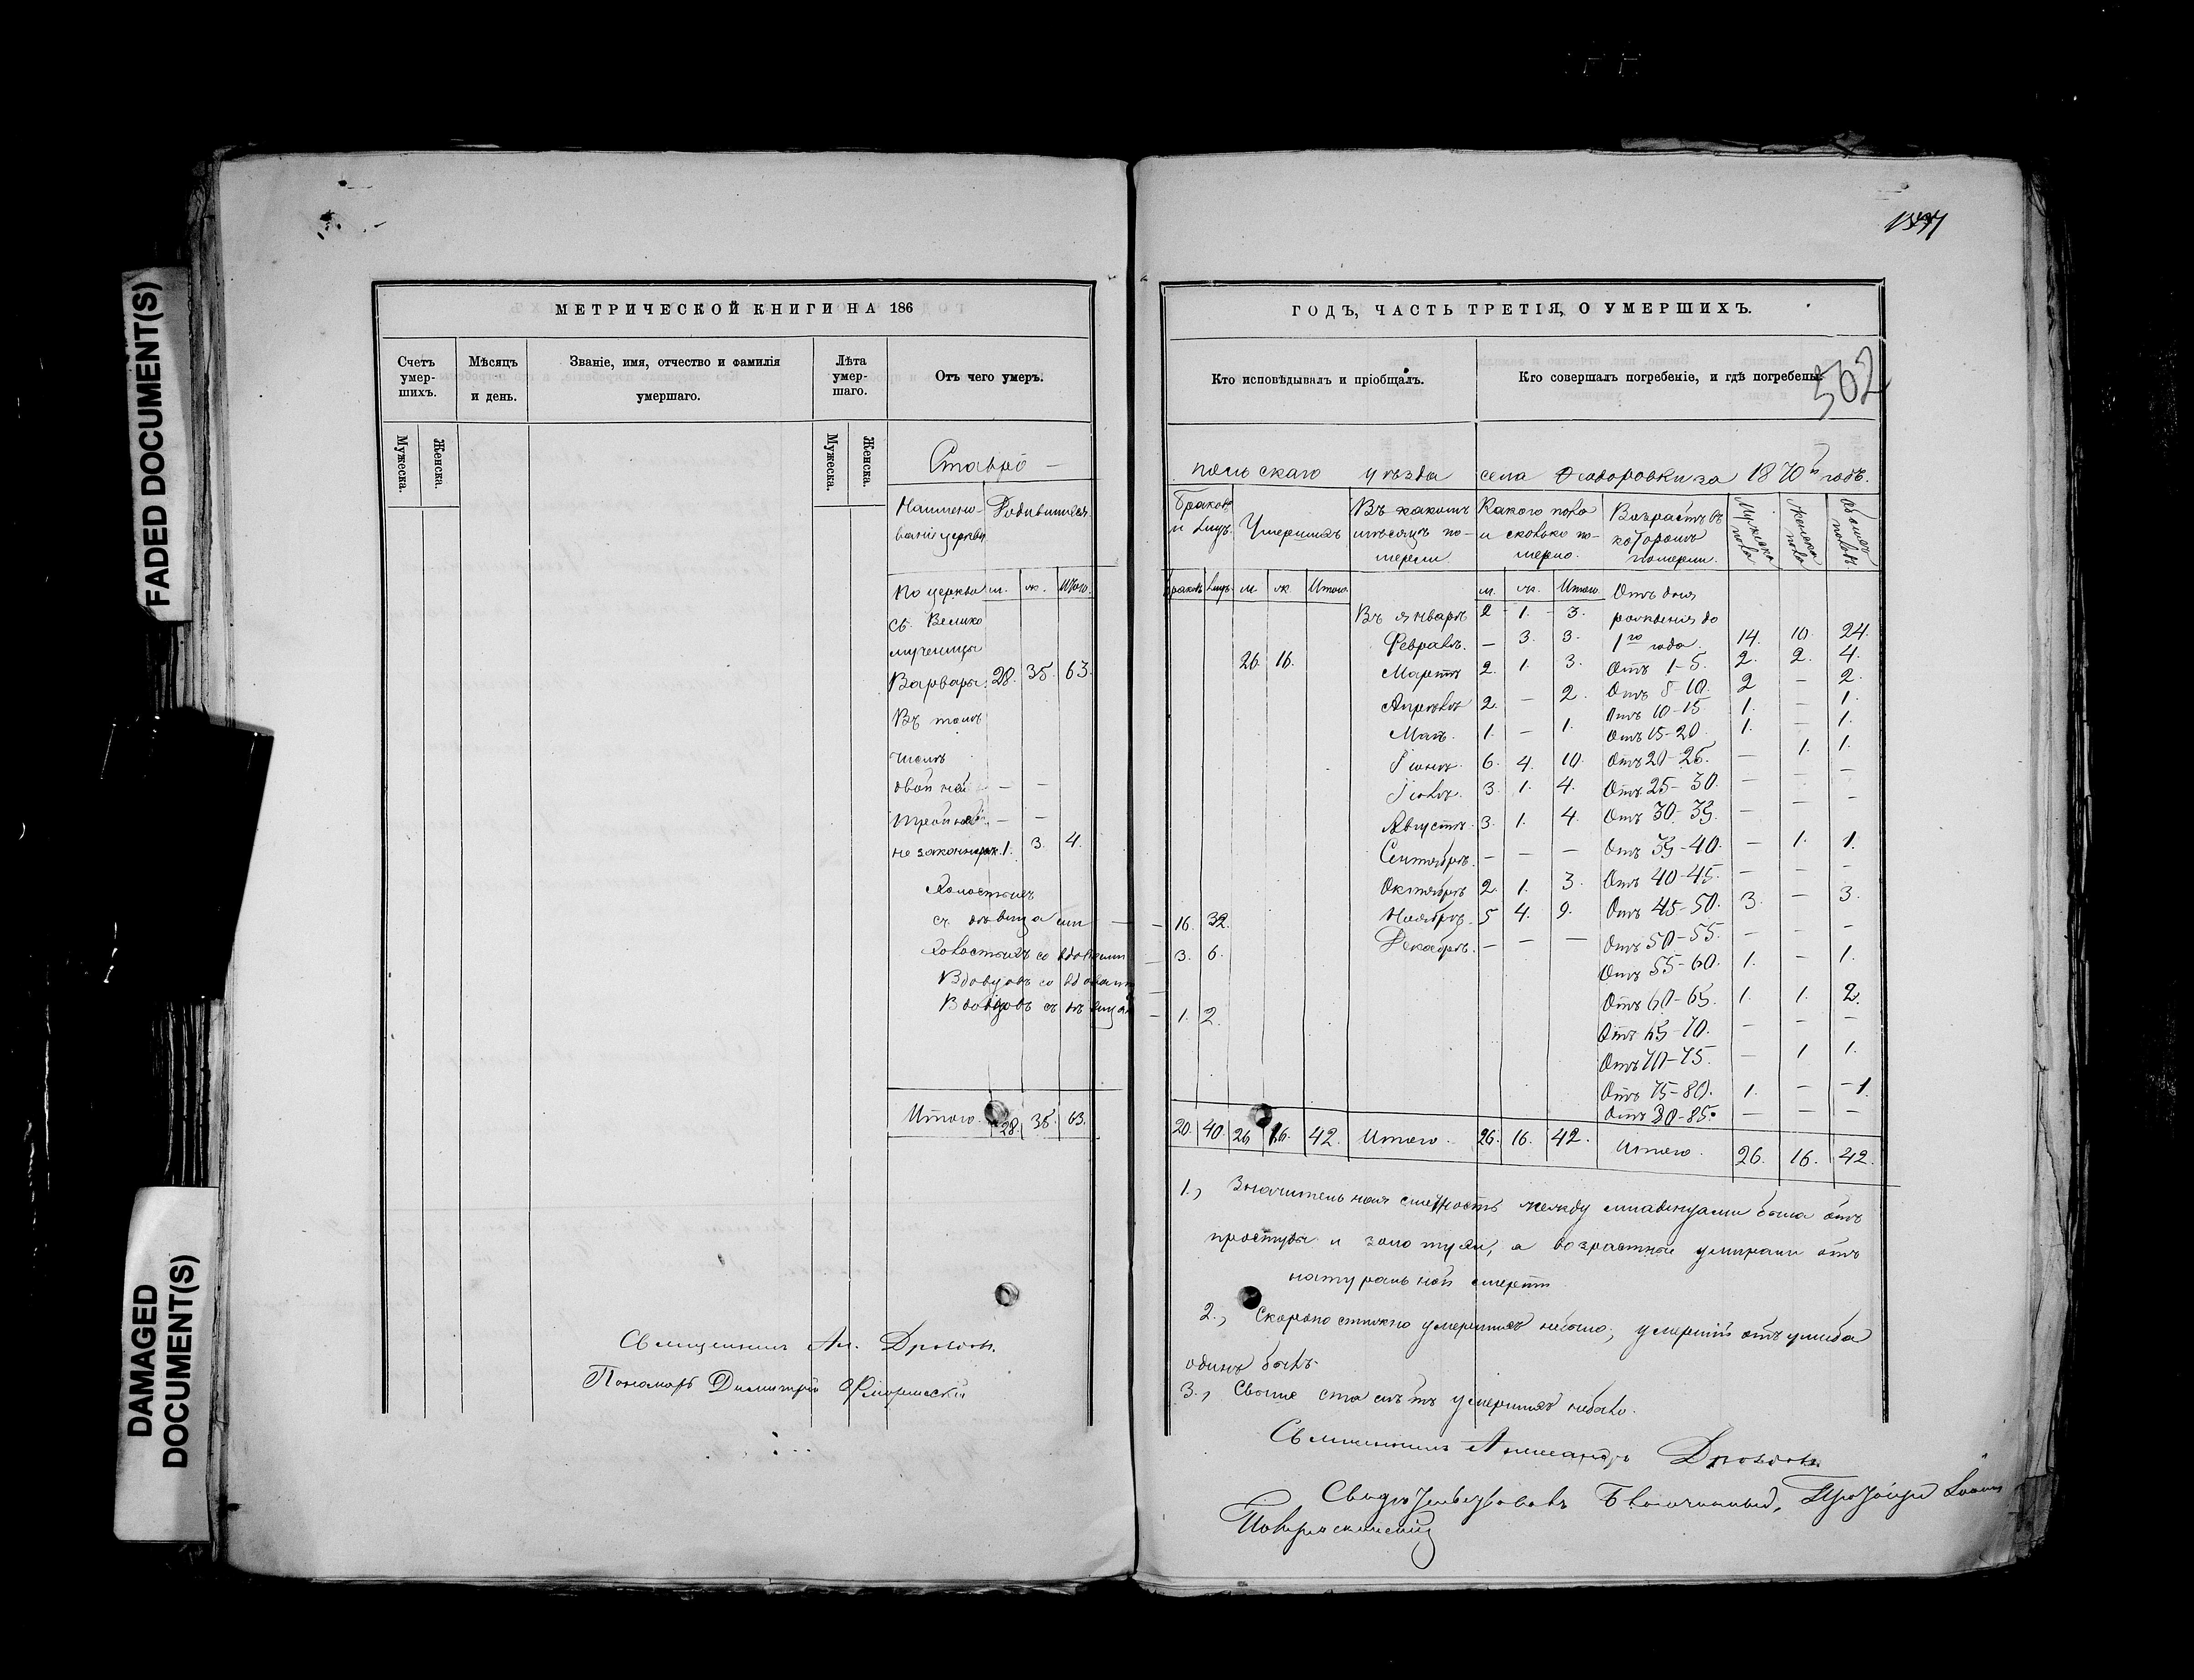 FADED DOCUMENT(S)
DAMAGED
DOCUMENT(S)
МЕТРИЧЕСКОЙ КНИГИ НА 186
Счетъ умер-шихъ.
Мѣсяцъ и день.
Званіе, имя, отчество и фамилія умершаго.
Лѣта умер-шаго.
Отъ чего умеръ.
Мужеска.
Женска.
Мужеска.
Женска.
Ставро-
Наимено-
ваніе церкви
Родившихся
По церкви м. ж. Итого.
Св. Велико
мученицы
Варвары. 28. 35. 63.
Въ томъ
числѣ
двойней — —
тройней — —
не законнорож. 1. 3. 4.
Холостыхъ
съ дѣвицами —
Холостыхъ со вдовами —
Вдовцовъ со вдовами —
Вдовцовъ съ дѣвицами —
Итого. 28. 35. 63.
Священникъ Ал.
Пономарь Димитрій
ГОДЪ, ЧАСТЬ ТРЕТІЯ, О УМЕРШИХЪ.
Кто исповѣдывалъ и пріобщалъ.
Кто совершалъ погребеніе, и гдѣ погребены.
502
польскаго уѣзда села Ѳеодоровки за 1870й годъ.
Браковъ
и лицъ.
Умершихъ
Въ какомъ
мѣсяцѣ по-
мерли
Какого пола
и сколько по-
мерло.
Возрастъ въ
которомъ
померли.
Мужеска
пола
Женска
пола
Обоихъ
половъ
Браковъ Лицъ. м. ж. Итого.
м. ж. Итого.
26. 16.
16. 32.
3. 6.
1. 2.
Въ январѣ 2 1. 3.
Февралѣ. — 3. 3.
Мартѣ 2. 1. 3.
Апрѣлѣ 2. — 2.
Маѣ. 1. — 1.
Іюнѣ. 6. 4. 10.
Іюлѣ. 3. 1. 4.
Августѣ. 3. 1. 4.
Сентябрѣ. — — —
Октябрѣ 2. 1. 3.
Ноябрѣ. 5 4. 9.
Декабрѣ. — — —
Отъ дня
рожденія до
1го года. 14. 10. 24.
Отъ 1-5. 2. 2. 4.
Отъ 5-10. 2 — 2.
Отъ 10-15. 1. — 1.
Отъ 15-20. 1. — 1.
Отъ 20-25. — 1. 1.
Отъ 25-30. — — —
Отъ 30-35. — — —
Отъ 35-40. — 1. 1.
Отъ 40-45. — — —
Отъ 45-50. 3. — 3.
Отъ 50-55. — — —
Отъ 55-60. 1. — 1.
Отъ 60-65. 1. 1. 2.
Отъ 65-70. — — —
Отъ 70-75. — 1 1.
Отъ 75-80. 1. — 1
Отъ 80-85. — — —
20. 40. 26 16. 42. Итого. 26. 16. 42. Итого. 26. 16. 42.
1., Значительная смертность между младенцами была отъ
простуды и золотухи, а возрастные умирали отъ
натуральной смерти
2., Скоропостижно умершихъ небыло; умершій отъ ушиба
одинъ былъ.
3., Свыше ста лѣтъ умершихъ небыло.
Священникъ Александръ
Свидѣтельствовалъ Благочинный, Протоіерей Іоаннъ